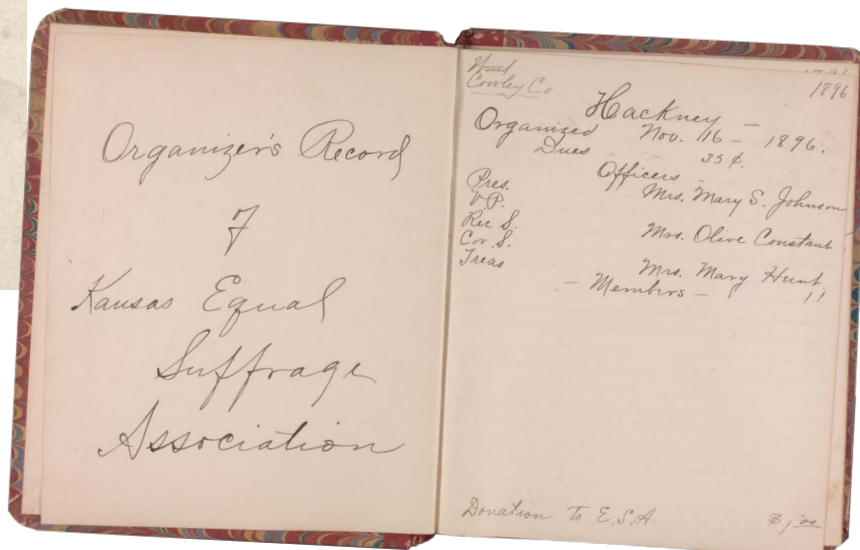 Organizer's Record
of
Kansas Equal
Suffrage
Association
Cowley Co
1896
Hackney —
Organized Nov. 16 – 1896.
Dues - - 35 ¢.
Officers –
Pres. Mrs. Mary S. Johnson
V.P.
Rec S. Mrs. Olive Constant
Cor. S.
Treas Mrs. Mary Hunt
– Members – 11
Donation to E.S.A. $1.00